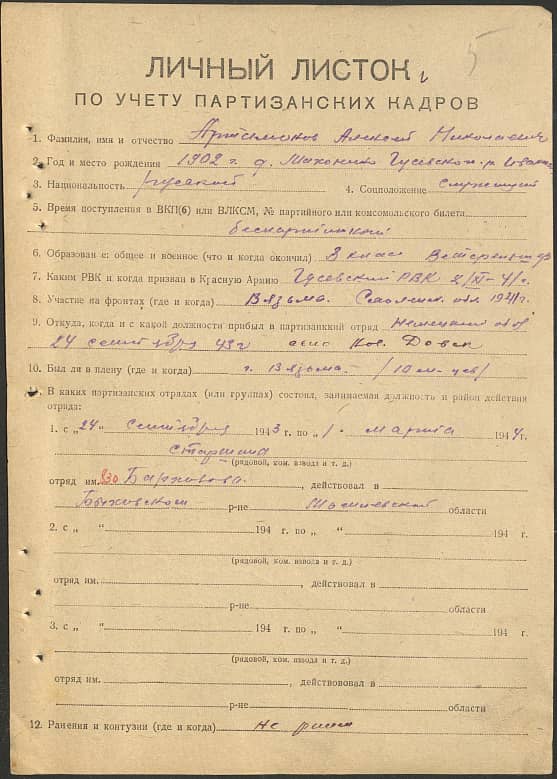 5
ЛИЧНЫЙ ЛИСТОК
ПО УЧЕТУ ПАРТИЗАНСКИХ КАДРОВ
1. Фамилия, имя и отчество Артамонов Алексей Николаевич
2. Год и место рождения 1902 г. д. Гусевской р.
3. Национальность русский 4. Соцположение служащий
5. Время поступления в ВКП(б) или ВЛКСМ, № партийного или комсомольского билета
беспартийный
6. Образован е: общее и военное (что и когда окончил) 3 класс
7. Каким РВК и когда призван в Красную Армию Гусевский РВК 2/XI-41 г.
8. Участие на фронтах (где и когда) Вязьма. Смоленск. обл 1941 г.
9. Откуда, когда и с какой должности прибыл в партизанккий отряд
24 сентября 43 г. Довск
10. Был ли в плену (где и когда) г. Вязьма. /10 м-цев/
11. В каких партизанских отрядах (или группах) состоял, занимаемая должность и район действия
отряда:
1. с „24" сентября 1943 г. по „1" марта 1944 г.
старшина
(рядовой, ком. взвода и т. д.)
отряд им. 830 , действовал в
Быховском р-не Могилевской области
2. с „ " 194 г. по „ " 194 г.
(рядовой, ком. взвода и т. д.)
отряд им. , действовал в
р-не области
3. с „ " 194 г. по „ " 194 г.
(рядовой, ком. взвода и т. д.)
отряд им. , действововал в
р-не области
12. Ранения и контузии (где и когда) не ранен